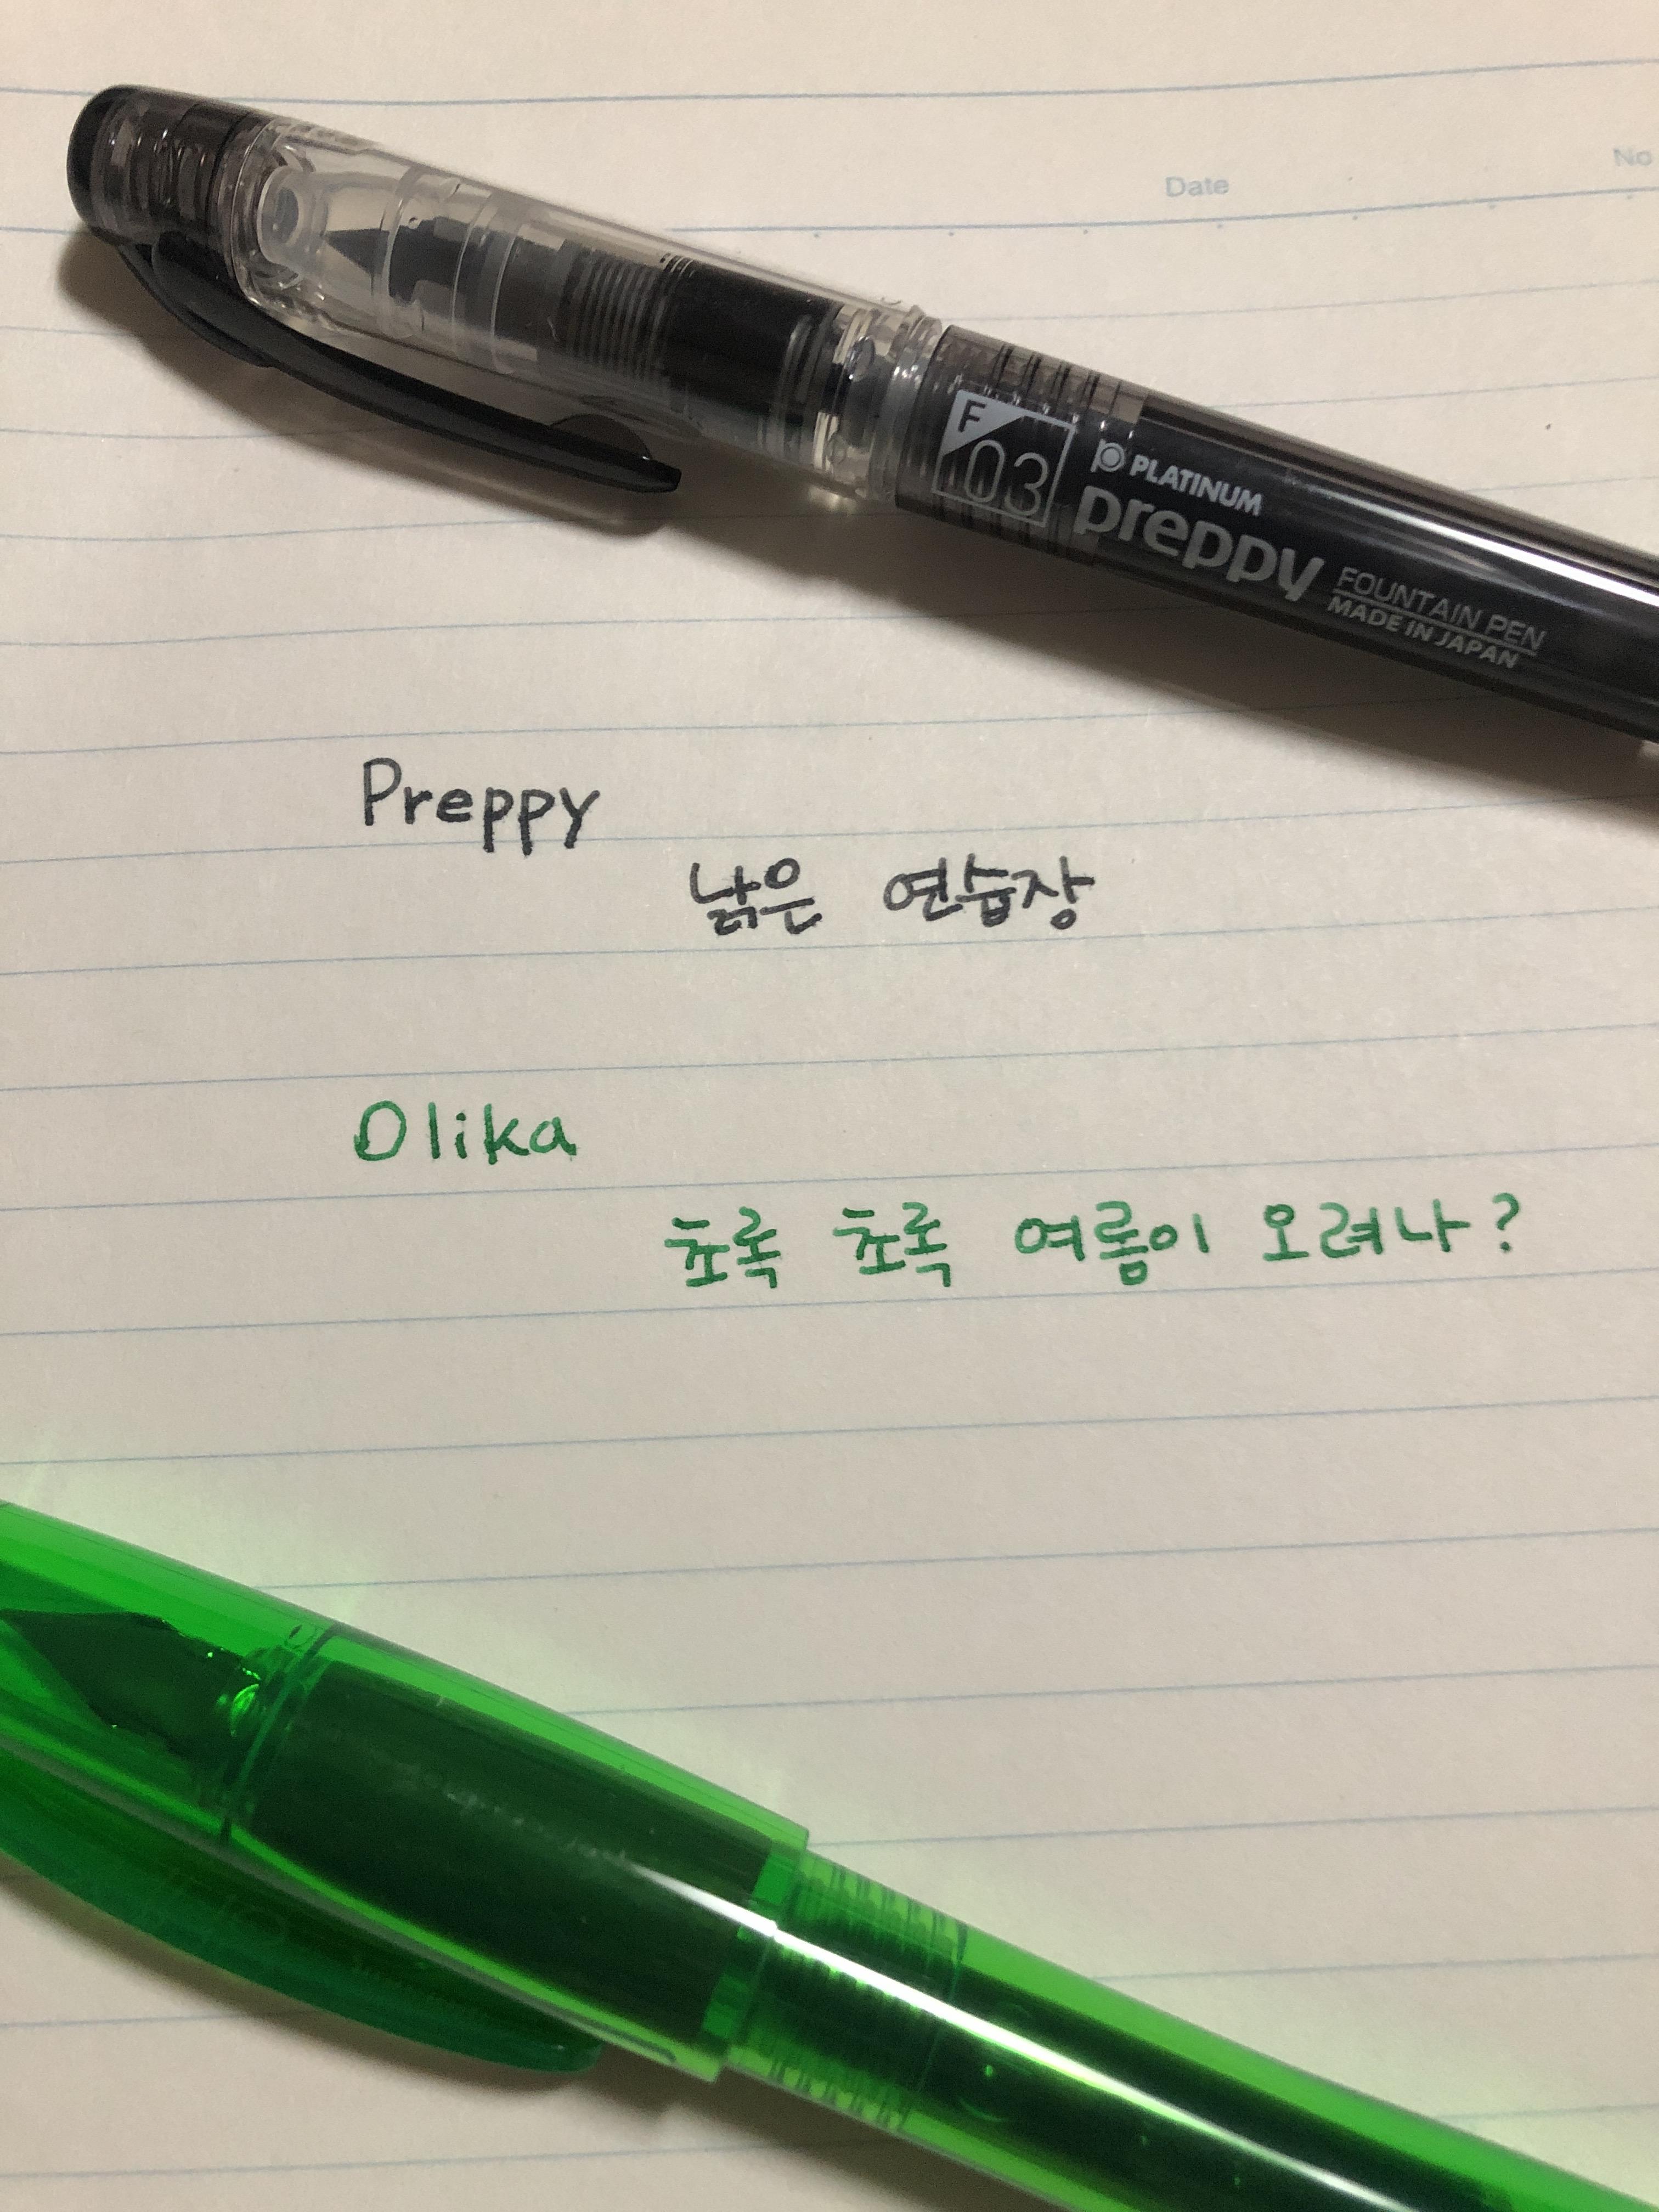 No
Date
F
03
PLATINUM
preppy
FOUNTAIN PEN
MADE IN JAPAN
Preppy
낡은 연습장
Olika
초록 초록 여름이 오려나?